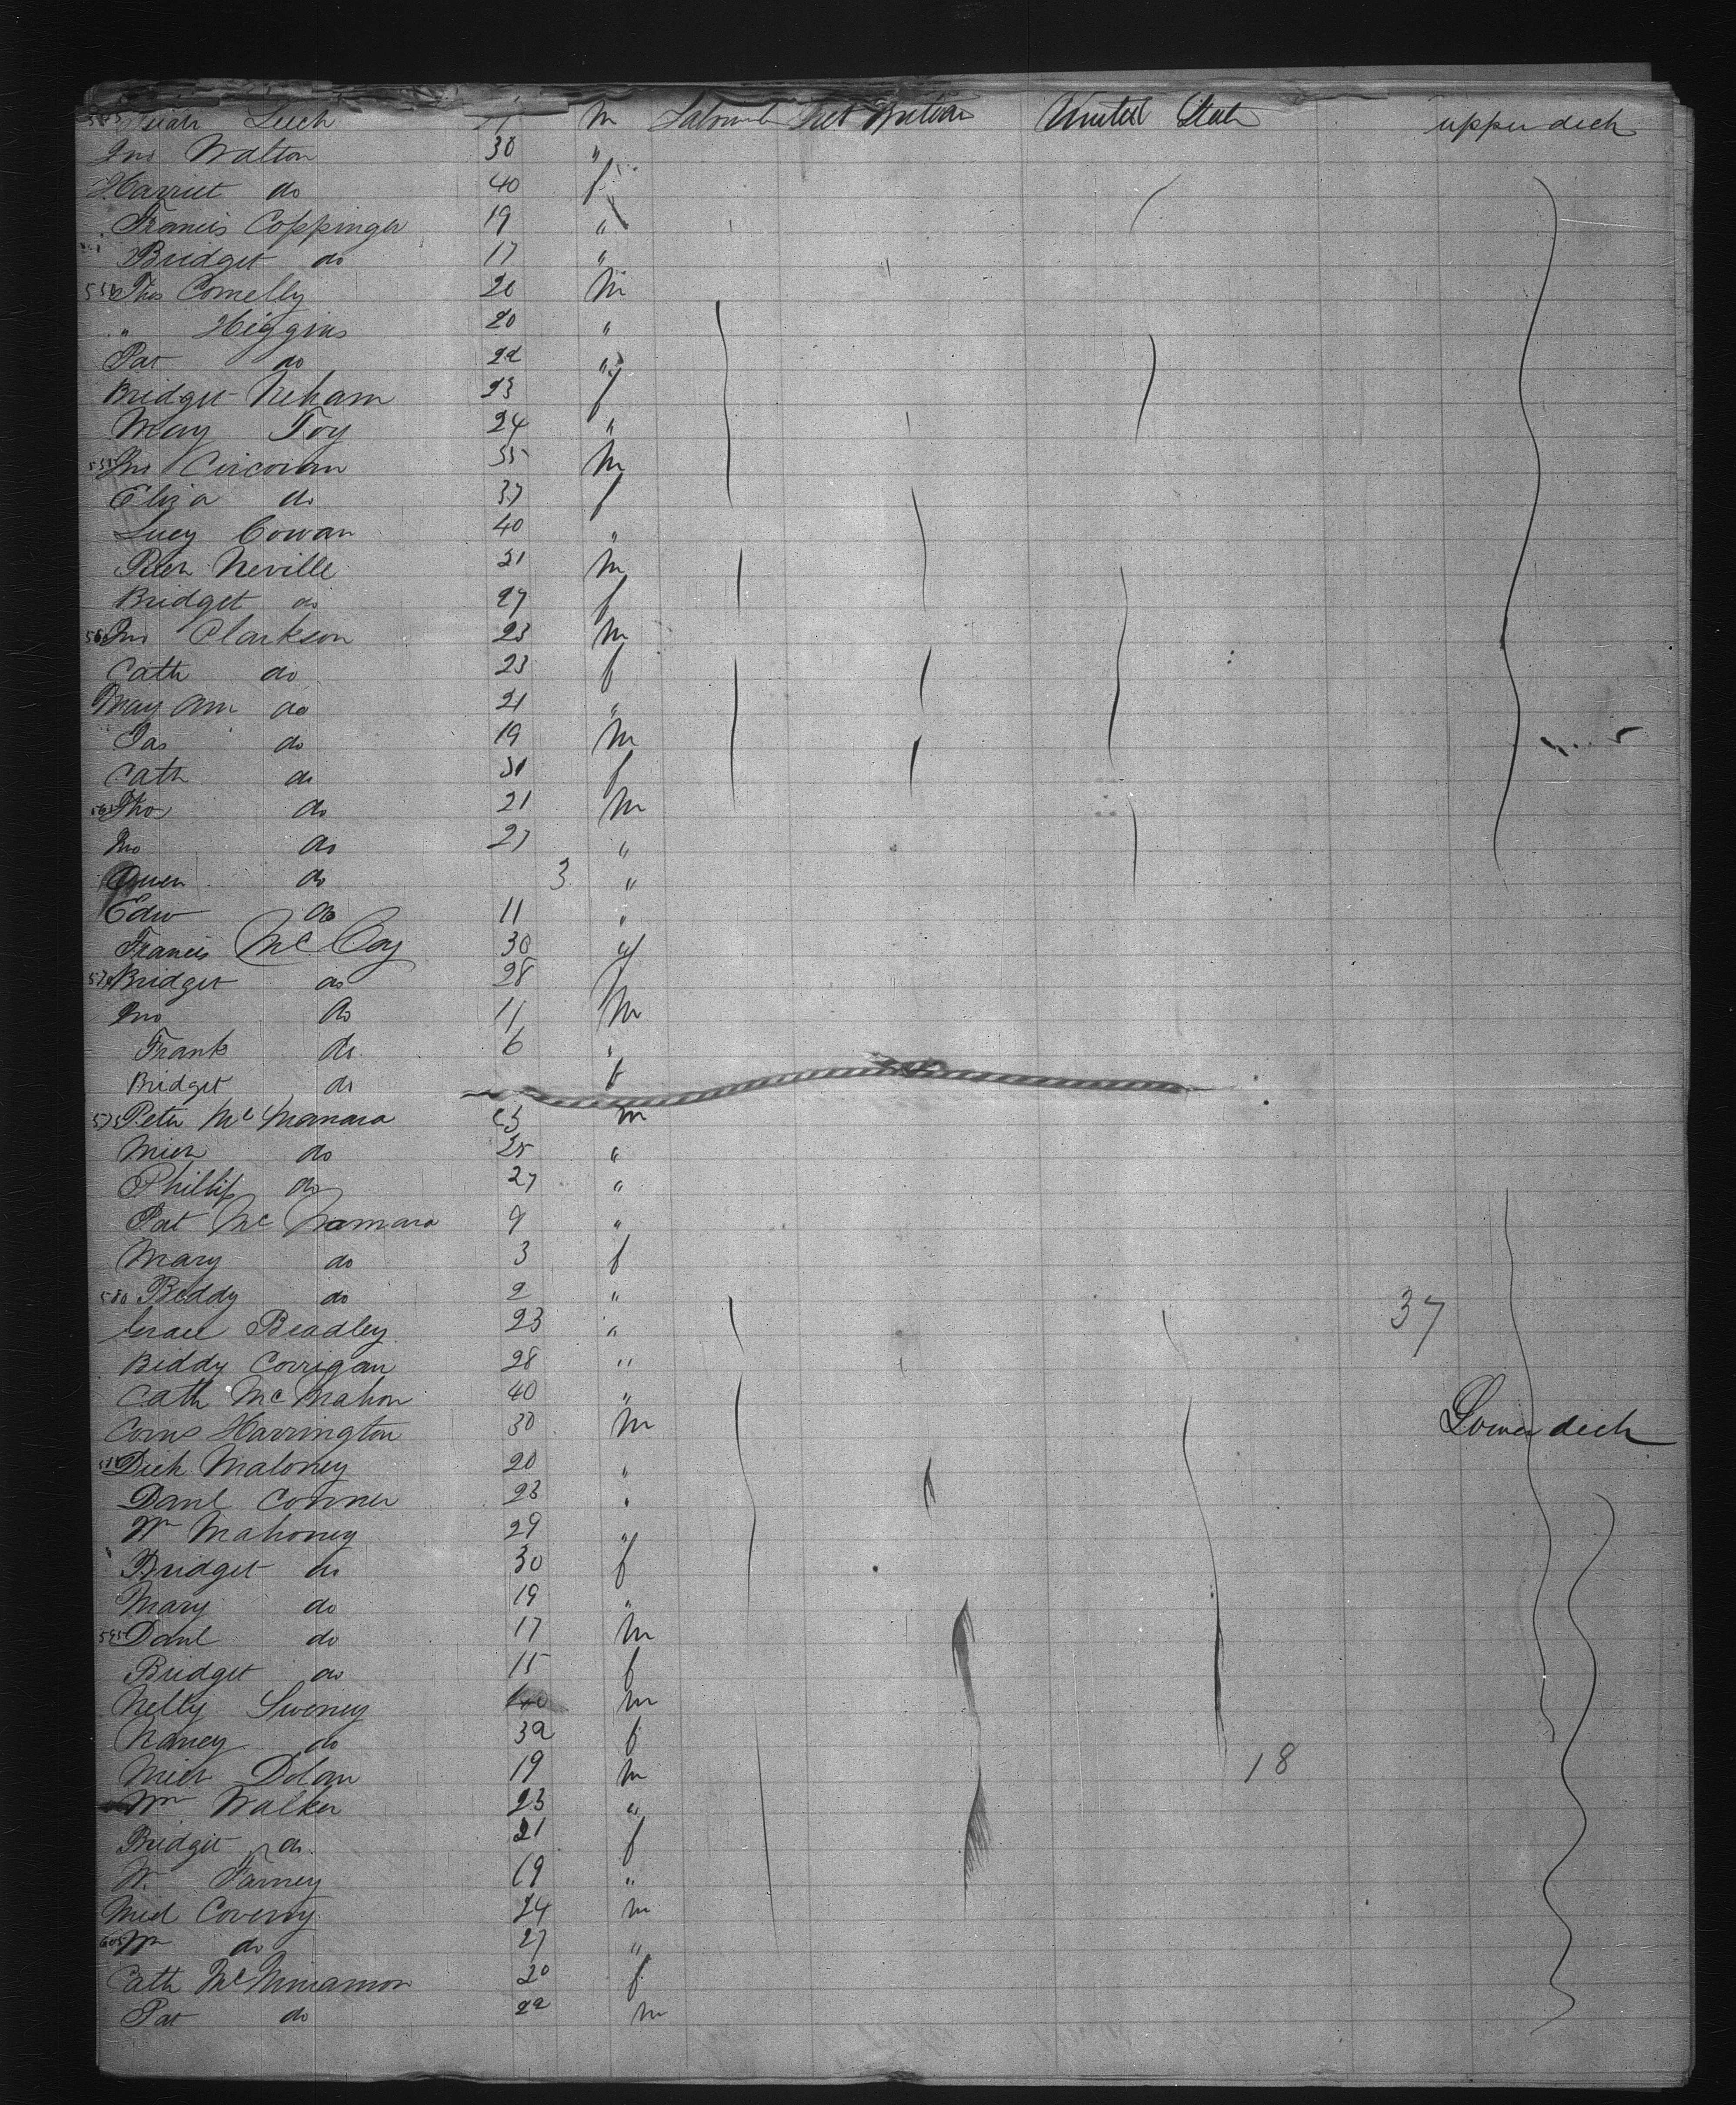 Leech m Great Britain United State upper deck
Jno Walton 30 "
Harriet do 40 f
Francis Coppinger 19 "
Bridget do 17 "
Thos Connelly 20 m
" Higgins 20 "
Pat do 22 "
Bridget Neham 23 f
May Foy 24 "
555 Jno Corcoran 35 m
Eliza do 37 f
Lucy Cowan 40 "
Peter Neville 31 m
Bridget do 27 f
560 Jno Clarkson 23 m
Cath do 23 f
May Ann do 21 "
Jas do 19 m
Cath do 31 f
565 Tho do 21 m
Jno do 27 "
Owen do 3 "
Edw do 11 "
Francis McCoy 30 f
570 Bridget do 28
Jno do 11 m
Frank do 6 "
Bridget do f
575 Peter McManara 23 m
Mich do 25 "
Phillip do 27 "
Pat McNamara 9 "
Mary do 3 f
580 Biddy do 2 "
37
Grace Beadley 23 "
Biddy Corrigan 28 "
Cath McMahon 40 "
Corns Harrington 30 m Lower deck
Dick Maloney 20 "
Danl Conner 23 "
Wm Mahoney 29 "
Bridget do 30 f
Mary do 19 "
Danl do 17 m
Bridget do 15 f
Nelly Sweney m
Nancy do 32 f
Mich Dolan 19 m
18
Wm Walker 23 "
Bridget do 21 f
W. Farney 19 "
Coverny 24 m
605 Wm do 27 "
Cath 20 f
Pat do 22 m